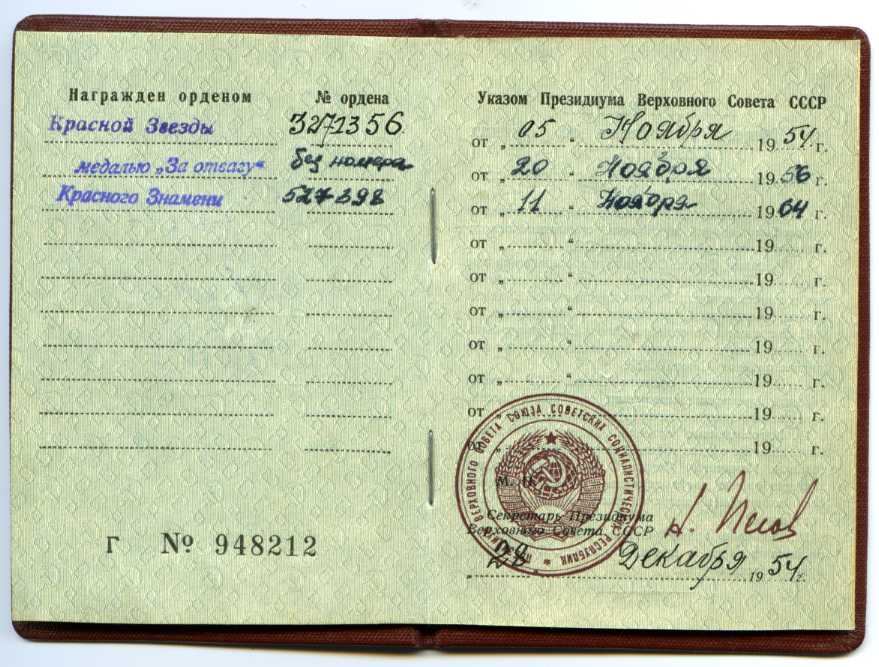 Награжден орденом № ордена
Красной Звезды 3271356
медалью „За отвагу“ без номера
Красного Знамени 527398
Г № 948212
Указом Президиума Верховного Совета СССР
от „05“ Ноября 1954 г.
от „20“ Ноября 1956 г.
от „11“ Ноября 1964 г.
от „ “ 19 г.
от „ “ 19 г.
от „ “ 19 г.
от „ “ 19 г.
от „ “ 19 г.
от „ “ 19 г.
„ “ 19 г.
ВЕРХОВНОГО СОВЕТА СОЮЗА СОВЕТСКИХ СОЦИАЛИСТИЧЕСКИХ РЕСПУБЛИК
М. П.
Секретарь Президиума
Верховного Совета СССР Н. Пегов
„28“ Декабря 1954 г.